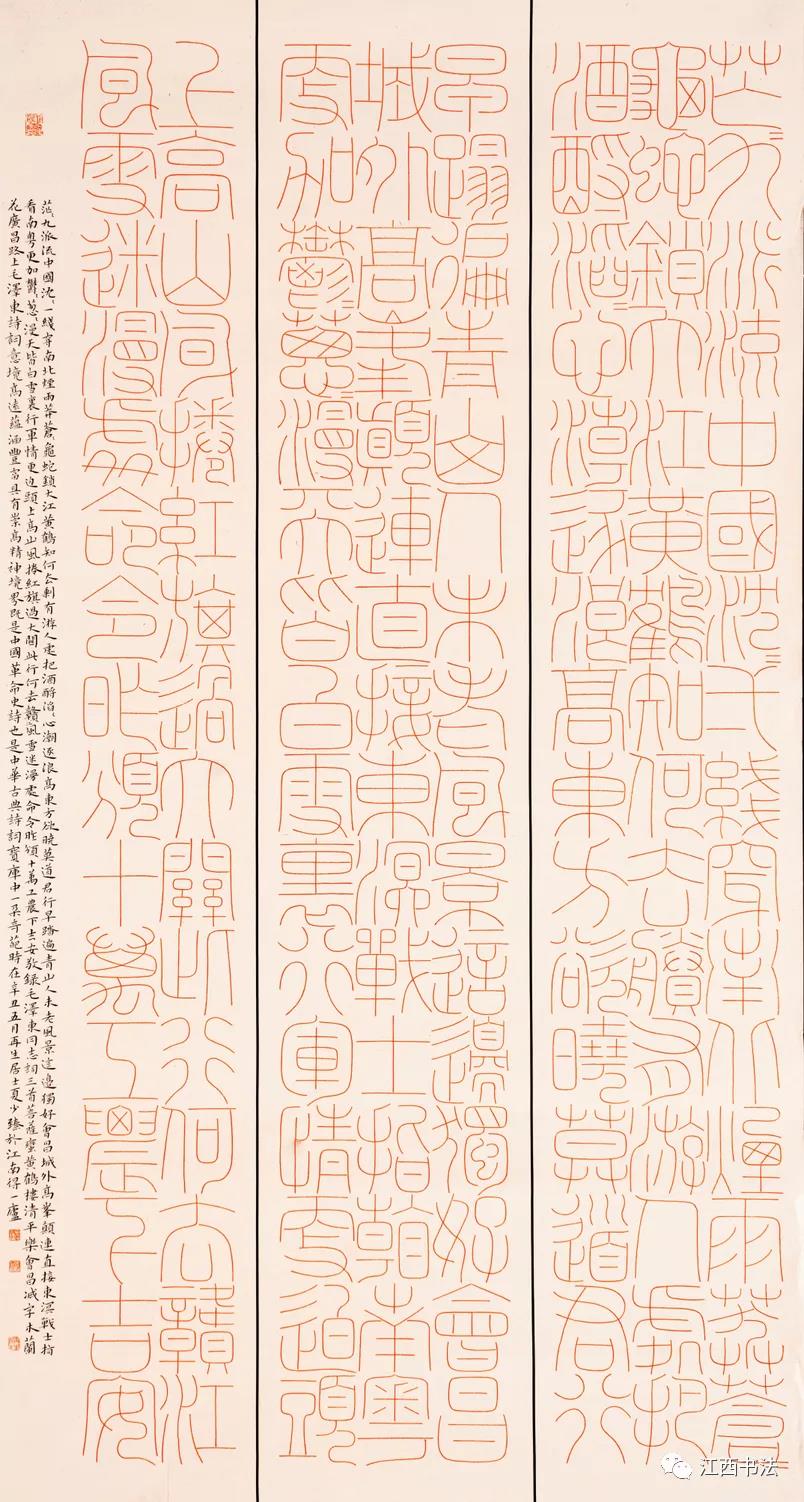 茫〻九派流中國沈〻一綫穿南北煙雨莽蒼〻
龜蛇鎖大江黃鶴知何去賸有游人處把
酒酹滔〻心潮逐浪高東方欲曉莫道君行
早踏遍青山人未老風景這邊獨好會昌
城外高峯顛連直接東溟戰士指看南粵
更加鬱〻蔥〻漫天皆白雪裏行軍情更迫頭
上高山風捲紅旗過大關此行何去贛江
風雪迷漫處命令昨頒十萬工農下吉安
茫〻九派流中國沈〻一綫穿南北煙雨莽蒼龜蛇鎖大江黃鶴知何去剩有游人處把酒酹滔〻心潮逐浪高東方欲曉莫道君行早踏遍青山人未老風景這邊獨好會昌城外高峯顛連直接東溟戰士指
看南粵更加鬱〻蔥〻漫天皆白雪裏行軍情更迫頭上高山風捲紅旗過大關此行何去贛風雪迷漫處命令昨頒十萬工農下吉安敬錄毛澤東同志詞三首菩薩蠻黃鶴樓清平樂會昌減字木蘭
花廣昌路上毛澤東詩詞意境高遠蘊涵豐富具有崇高精神境界既是中國革命史詩也是中華古典詩詞寶庫中一朵奇葩時在辛丑五月再生居士夏少臻於江南得一廬
江西书法